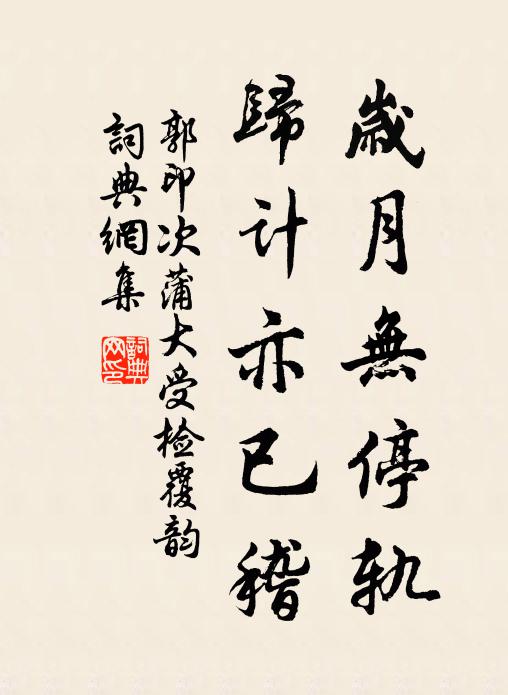 歳月無停軌
歸计亦已稽
郭印次蒲大受检覆韵
詞典網集
詞典网印